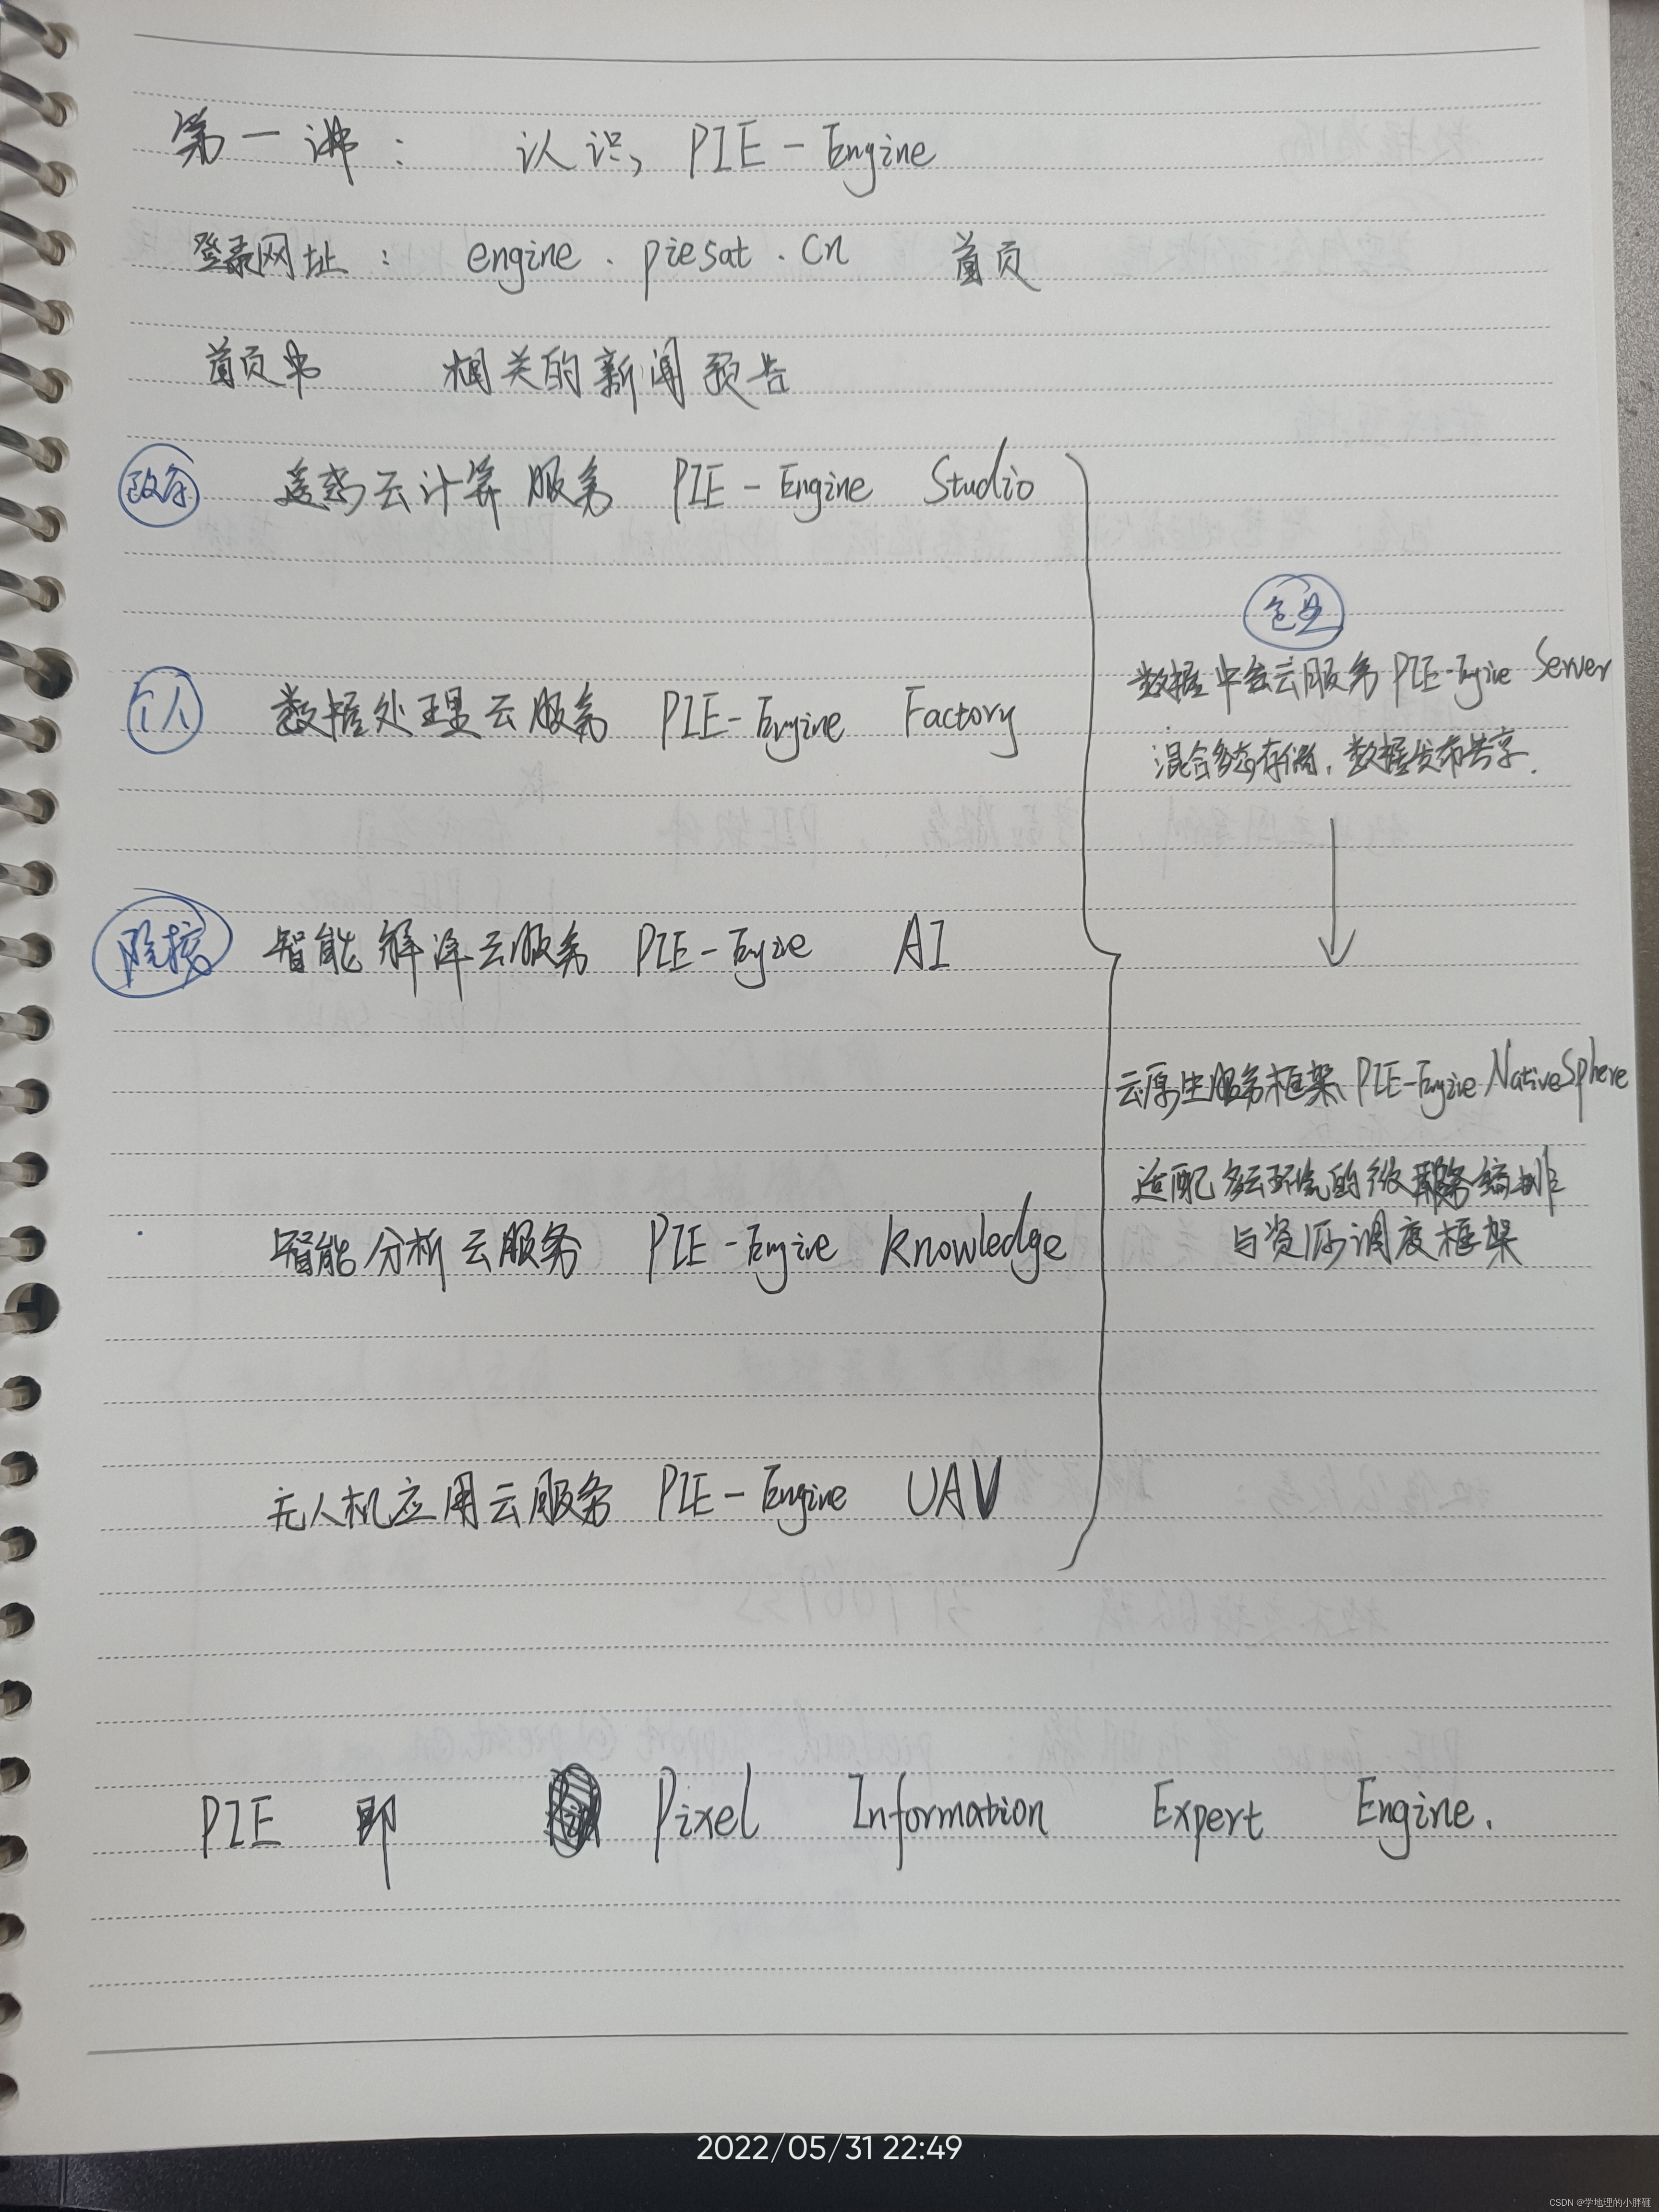 第一讲： 认识 PIE-Engine
登录网址： engine.piesat.cn 首页
首页中 相关的新闻预告
政务 遥感云计算服务 PIE-Engine Studio
个人 数据处理云服务 PIE-Engine Factory
院校 智能解译云服务 PIE-Engine AI
智能分析云服务 PIE-Engine Knowledge
无人机应用云服务 PIE-Engine UAV
数据中台云服务 PIE-Engine Server
混合多态存储，数据发布共享.
云原生服务框架 PIE-Engine NativeSphere
适配多云环境的微服务编排
与资源调度框架
PIE 即 Pixel Information Expert Engine.
2022/05/31 22:49
CSDN @学地理的小胖砸